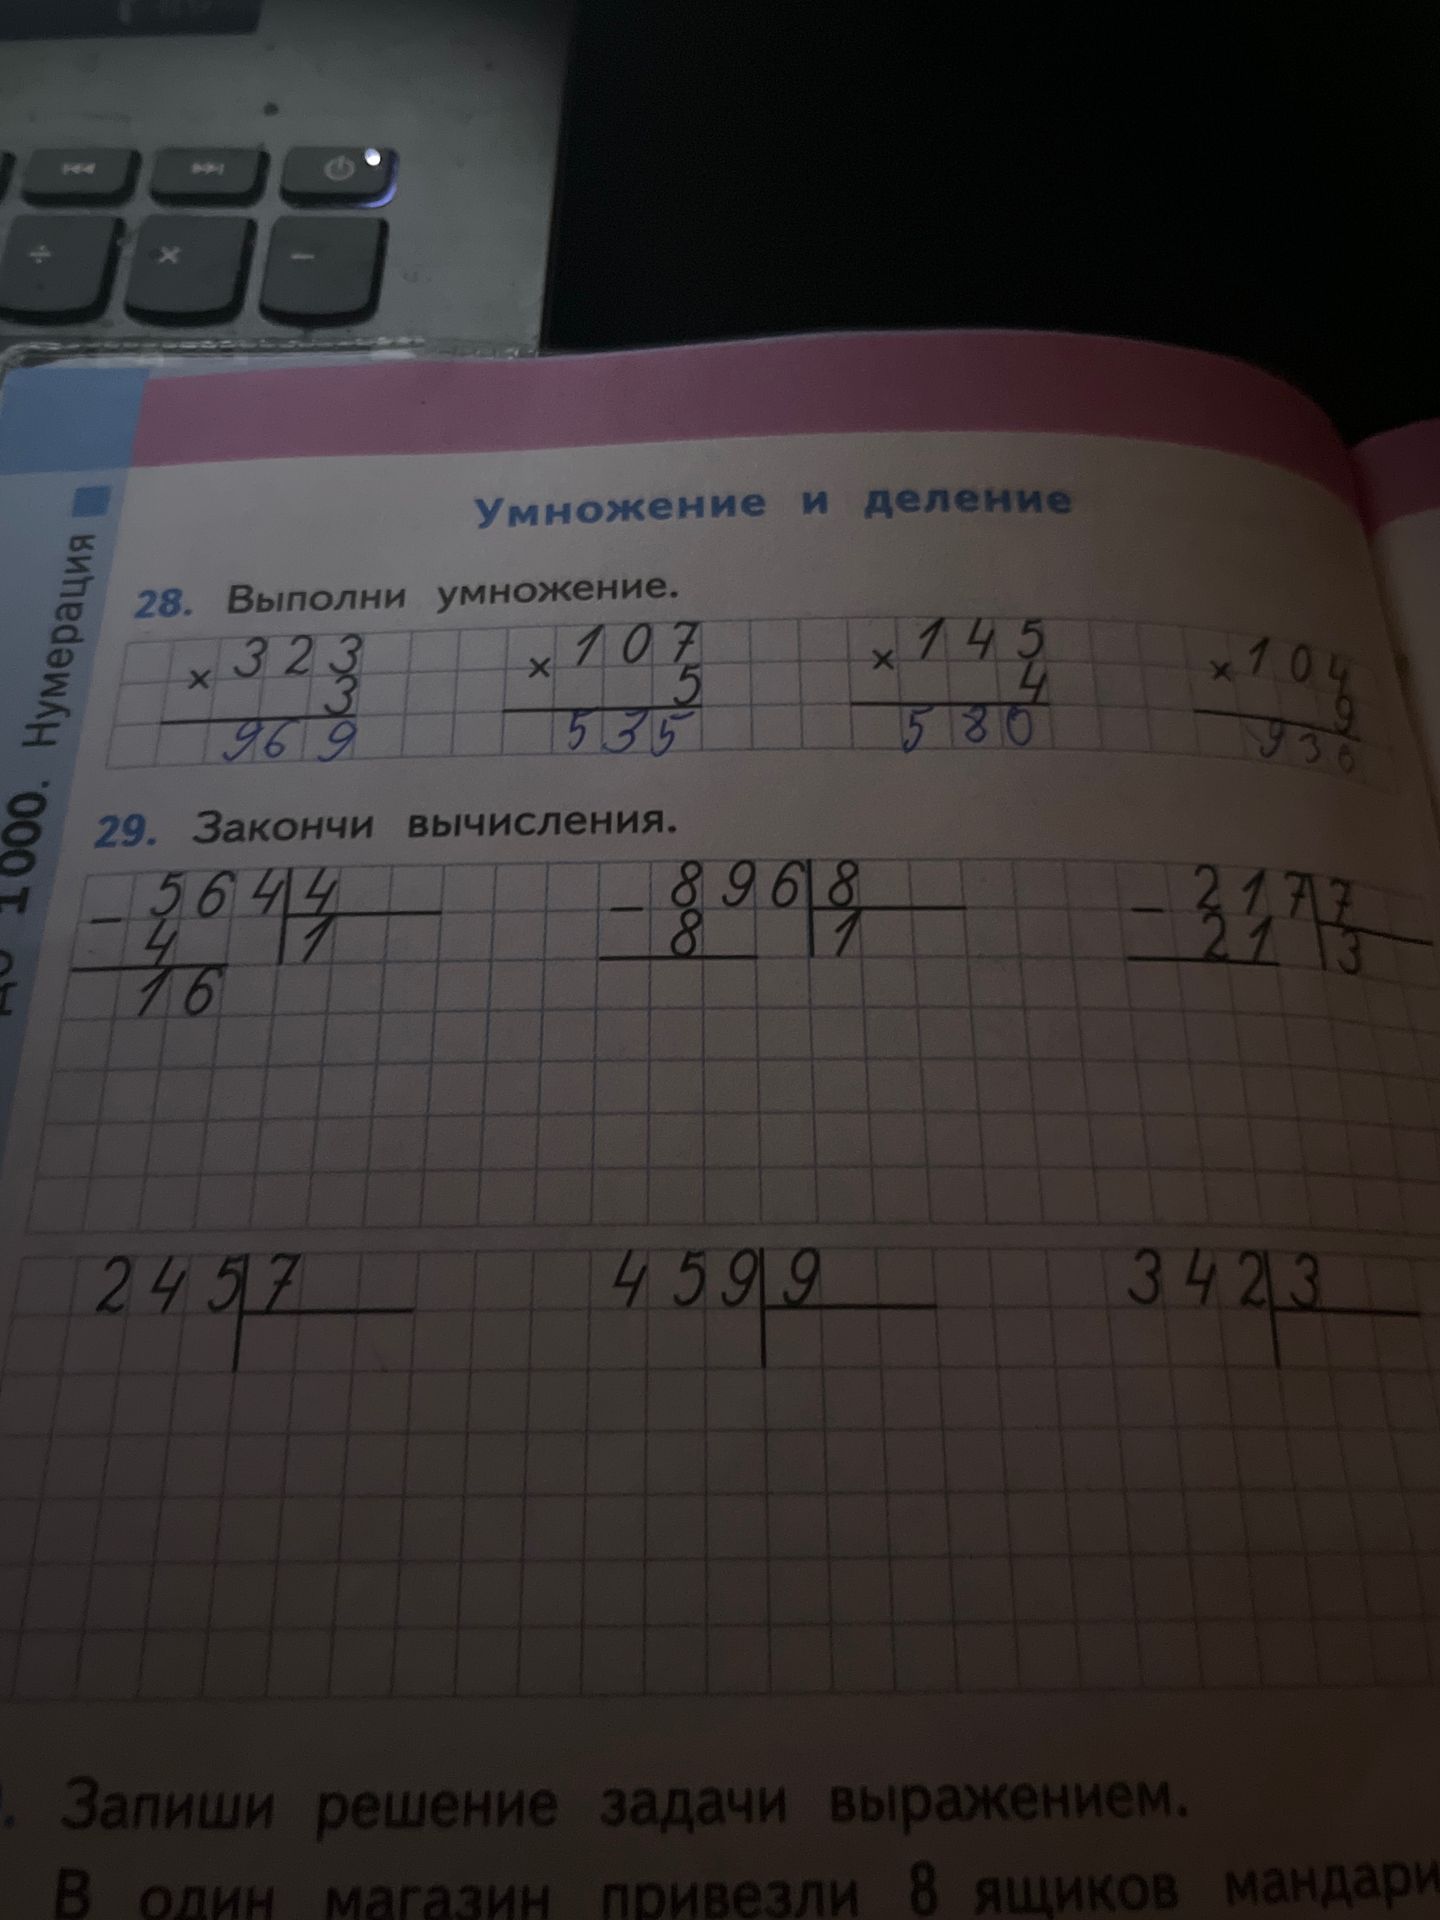 Умножение и деление
до 1000. Нумерация
28. Выполни умножение.
× 323 × 107 × 145 × 104
3 5 4 9
969 535 580 936
29. Закончи вычисления.
− 564 4 − 896 8 − 217 7
4 1 8 1 21 3
16
245 7 459 9 342 3
. Запиши решение задачи выражением.
В один магазин привезли 8 ящиков мандари